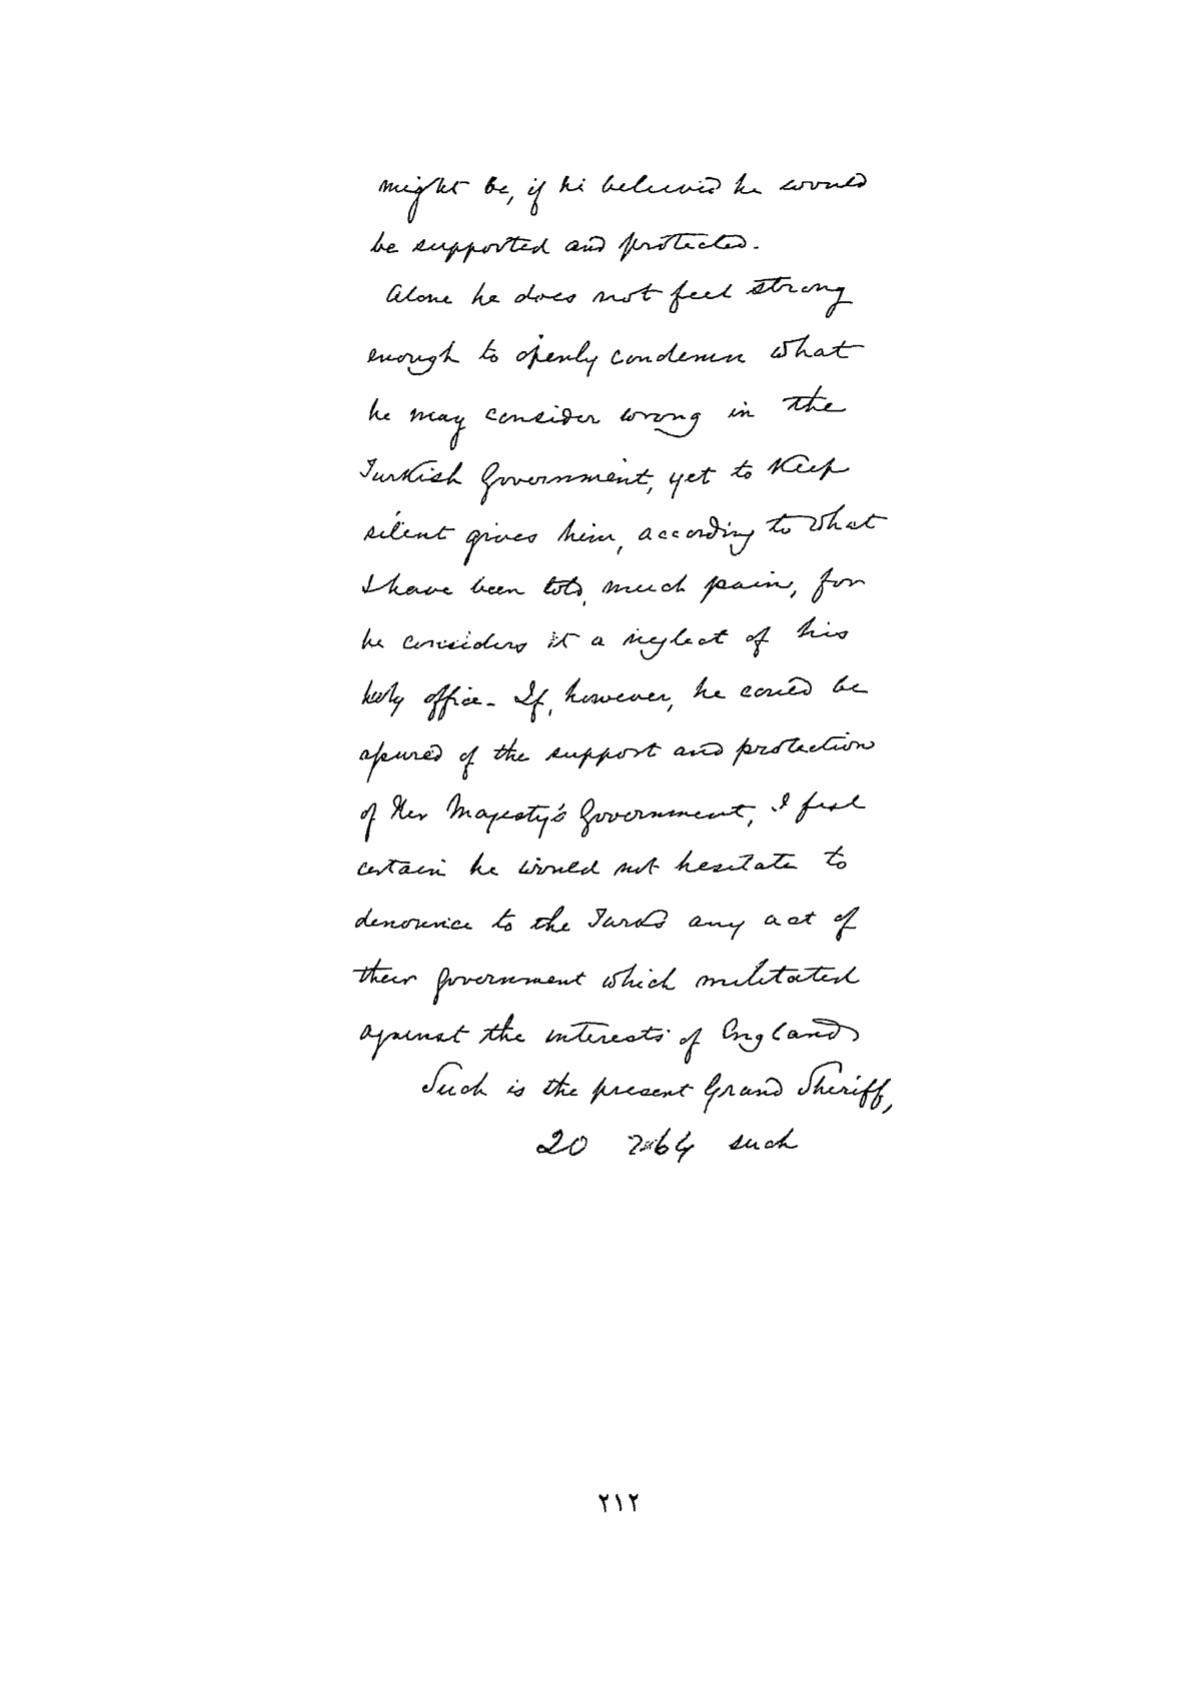 might be, if he believed he would
be supported and protected.
Alone he does not feel strong
enough to openly condemn what
he may consider wrong in the
Turkish Government, yet to keep
silent gives him, according to what
I have been told, much pain, for
he considers it a neglect of his
holy office. If, however, he could be
assured of the support and protection
of Her Majesty's Government, I feel
certain he would not hesitate to
denounce to the Turks any act of
their government which militated
against the interests of England
Such is the present Grand Sheriff,
20 such
٢١٢